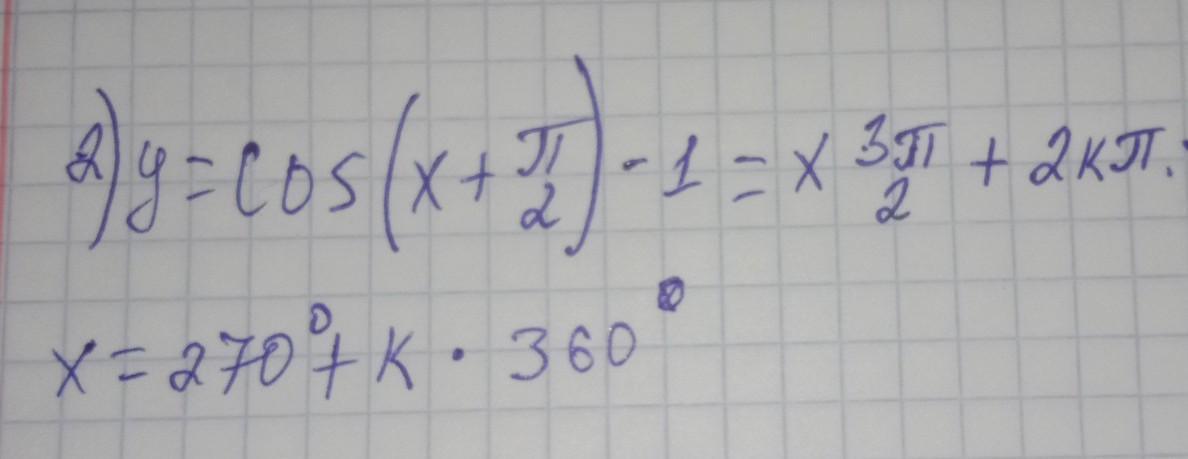 2) y = cos(x + π/2) - 1 = x 3π/2 + 2кπ.
x = 270° + к · 360°